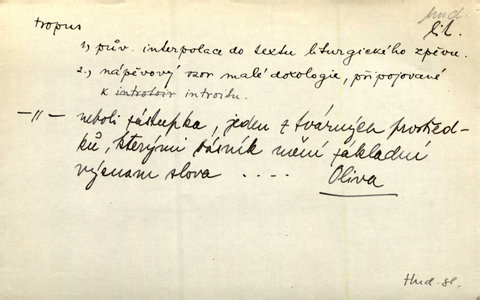 hud.
lit.
tropus
1) pův. interpolace do textu liturgického zpěvu.
2.) nápěvový vzor malé doxologie, připojované
k introitu.
—"— neboli záslupka, jeden z tvárných prostřed-
ků, kterými básník mění základní
význam slova ....
Oliva
Hud. sl.